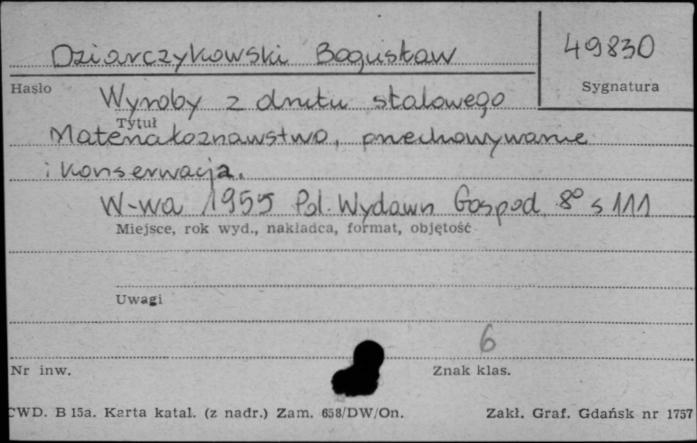 Dziarczykowski Bogusław
49830
Hasło
Sygnatura
Wyroby z drutu stalowego
Tytuł
Materiałoznawstwo, przechowywanie
i konserwacja.
W-wa 1955 Pol. Wydawn Gospod. 8° s 111
Miejsce, rok wyd., nakładca, format, objętość
Uwagi
6
Nr inw.
Znak klas.
CWD. B 15a. Karta katal. (z nadr.) Zam. 658/DW/On.
Zakł. Graf. Gdańsk nr 1757